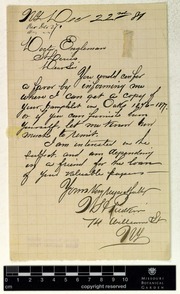 NY Dec 22nd 81
Doctr Engleman
St Louis
Dear Sir
You would confer
a favor by informing me
where I can get a copy of
your pamphlet on Oaks 1876-1877
or if you can furnish him
yourself, let me know how
much to remit.
I am interested in the
subject and am depending
on a friend for the loan
of your valuable papers
Yours Very respectfully
74 William St
NY
MISSOURI
BOTANICAL
GARDEN
0 1 2 3 4 5 6 7 8 9 10